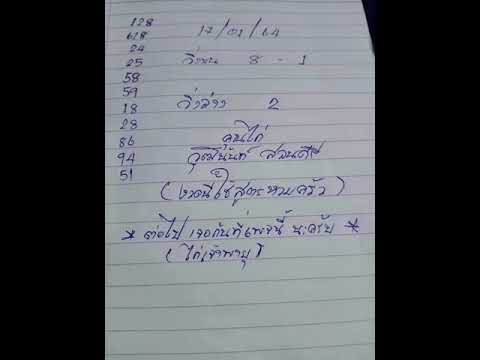 128
618
24
25
58
59
18
28
86
94
51
17/01/64
วิ่งบน 8 - 1
วิ่งล่าง 2
ลุงไก่
(งวดนี้ใช้สูตรหามครับ)
* ต่อไป เจอกันที่เพจนี้ นะครับ *
(ไก่เจ้าพายุ)